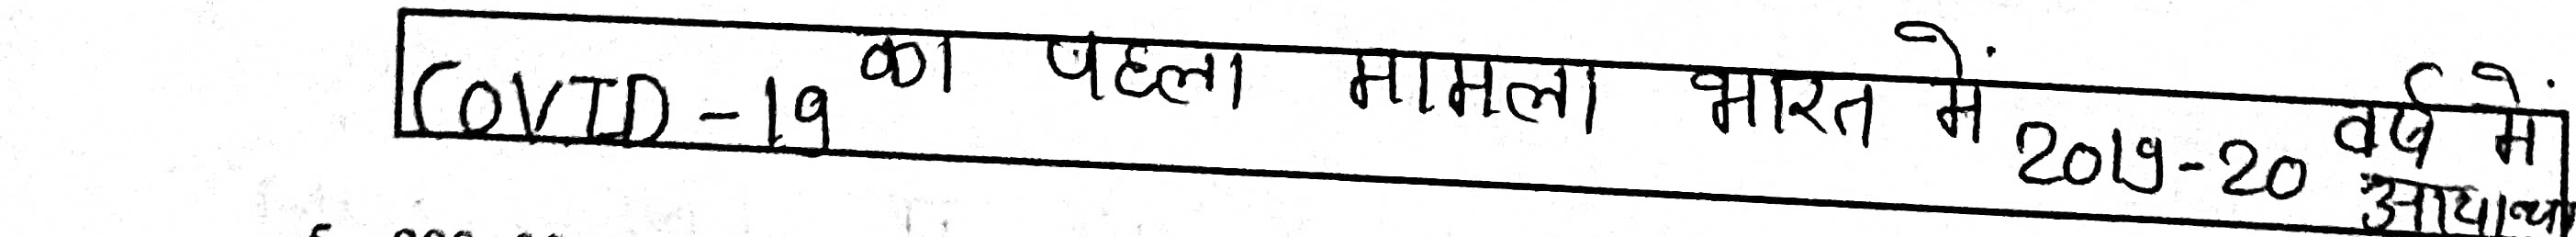 COVID-19 का पहला मामला भारत में 2019-20 वर्ष में
आया था